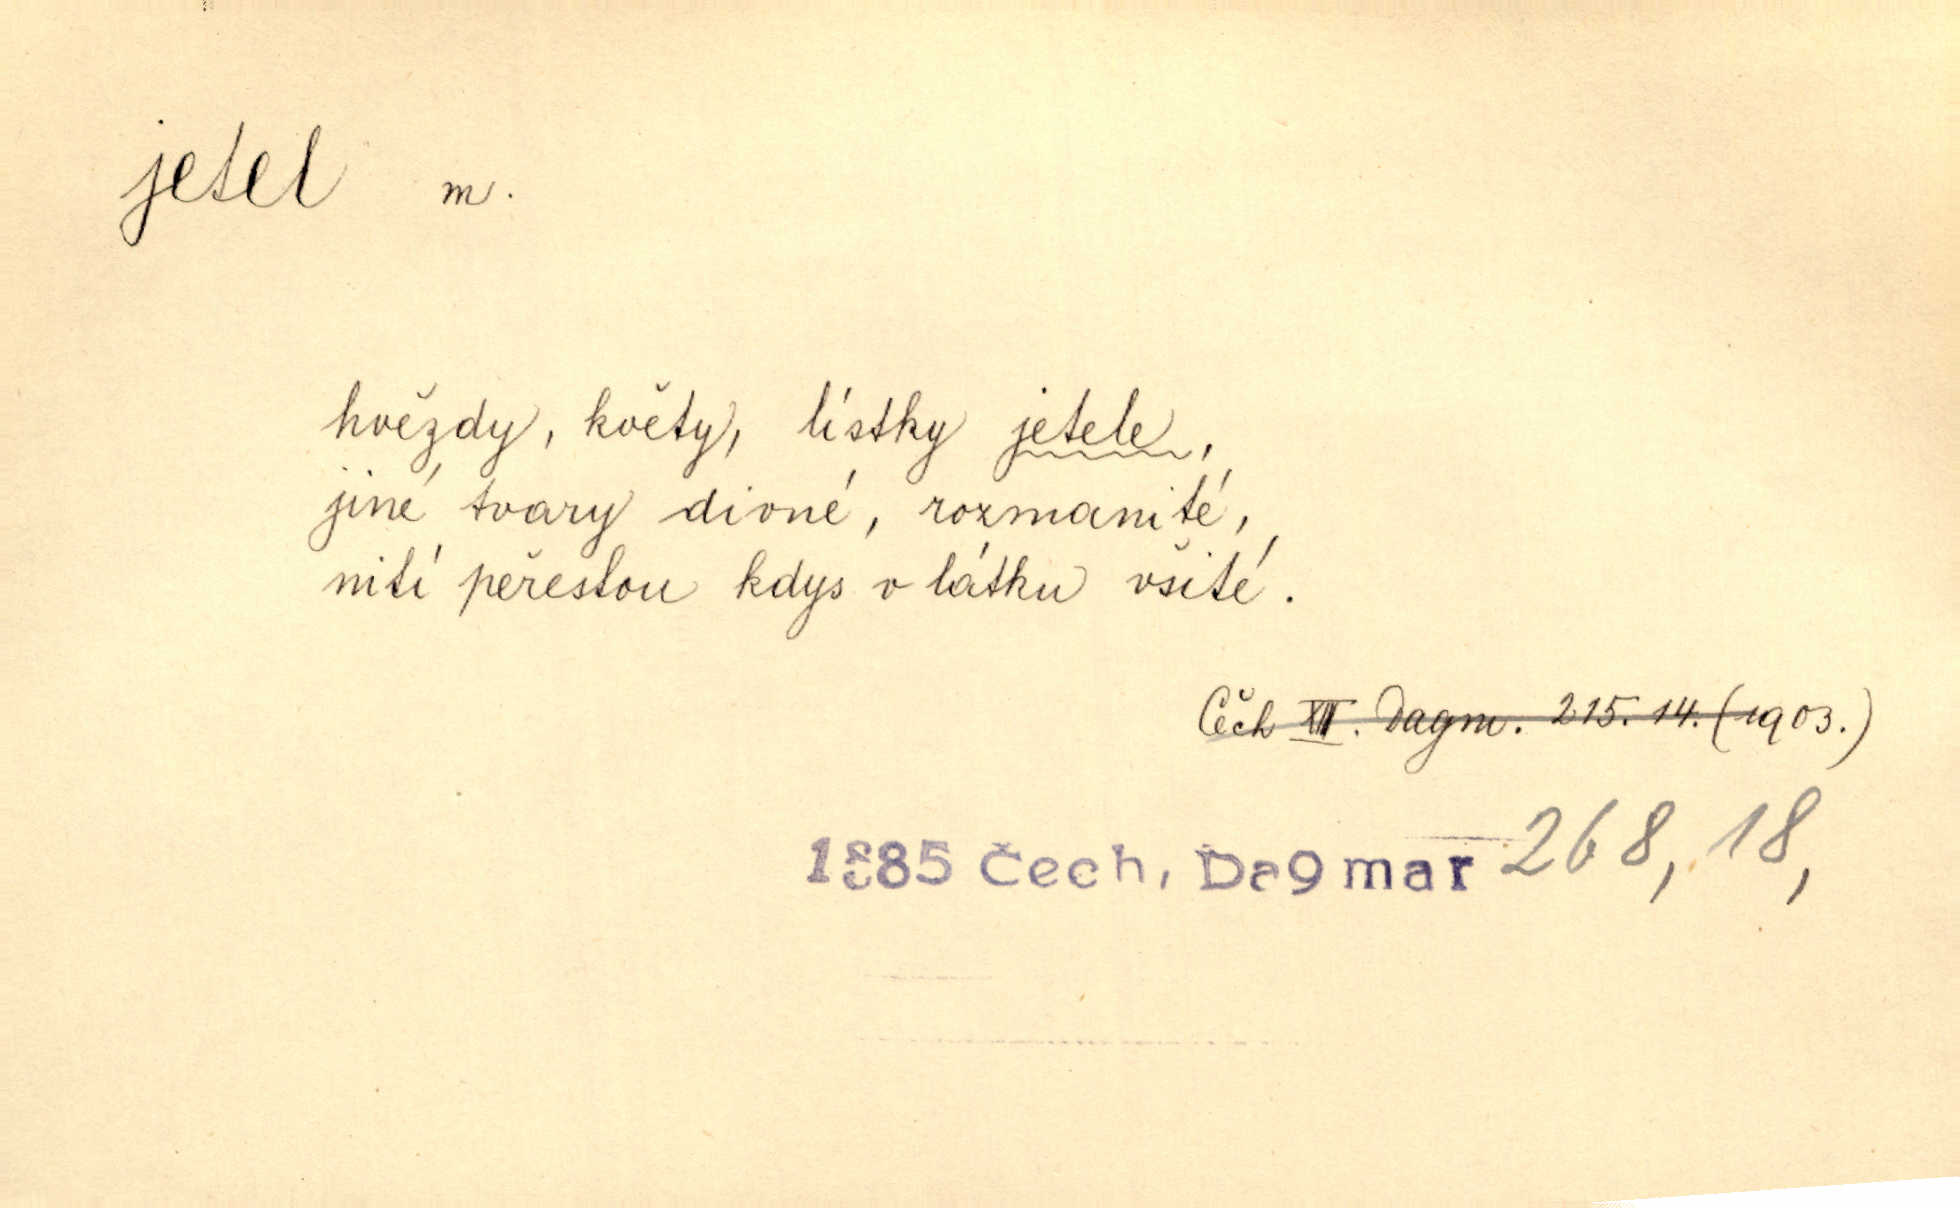 jetel m.
hvězdy, květy, lístky jetele,
jiné tvary divné, rozmanité,
nití peřestou kdys v látku všité.
Čech XII. Dagm. 215. 14. (1903.)
1885 Čech, Dagmar 268, 18,